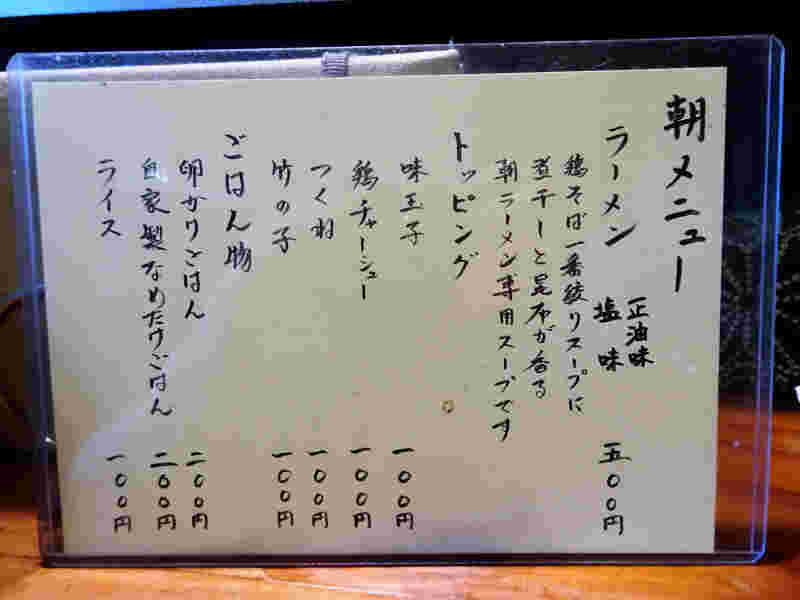 朝メニュー
ラーメン 正油味 塩味 五〇〇円
鶏そば一番絞りスープに
煮干しと昆布が香る
朝ラーメン専用スープです
トッピング
味玉子 一〇〇円
鶏チャーシュー 一〇〇円
つくね 一〇〇円
竹の子 一〇〇円
ごはん物
卵かけごはん 二〇〇円
自家製なめたけごはん 二〇〇円
ライス 一〇〇円